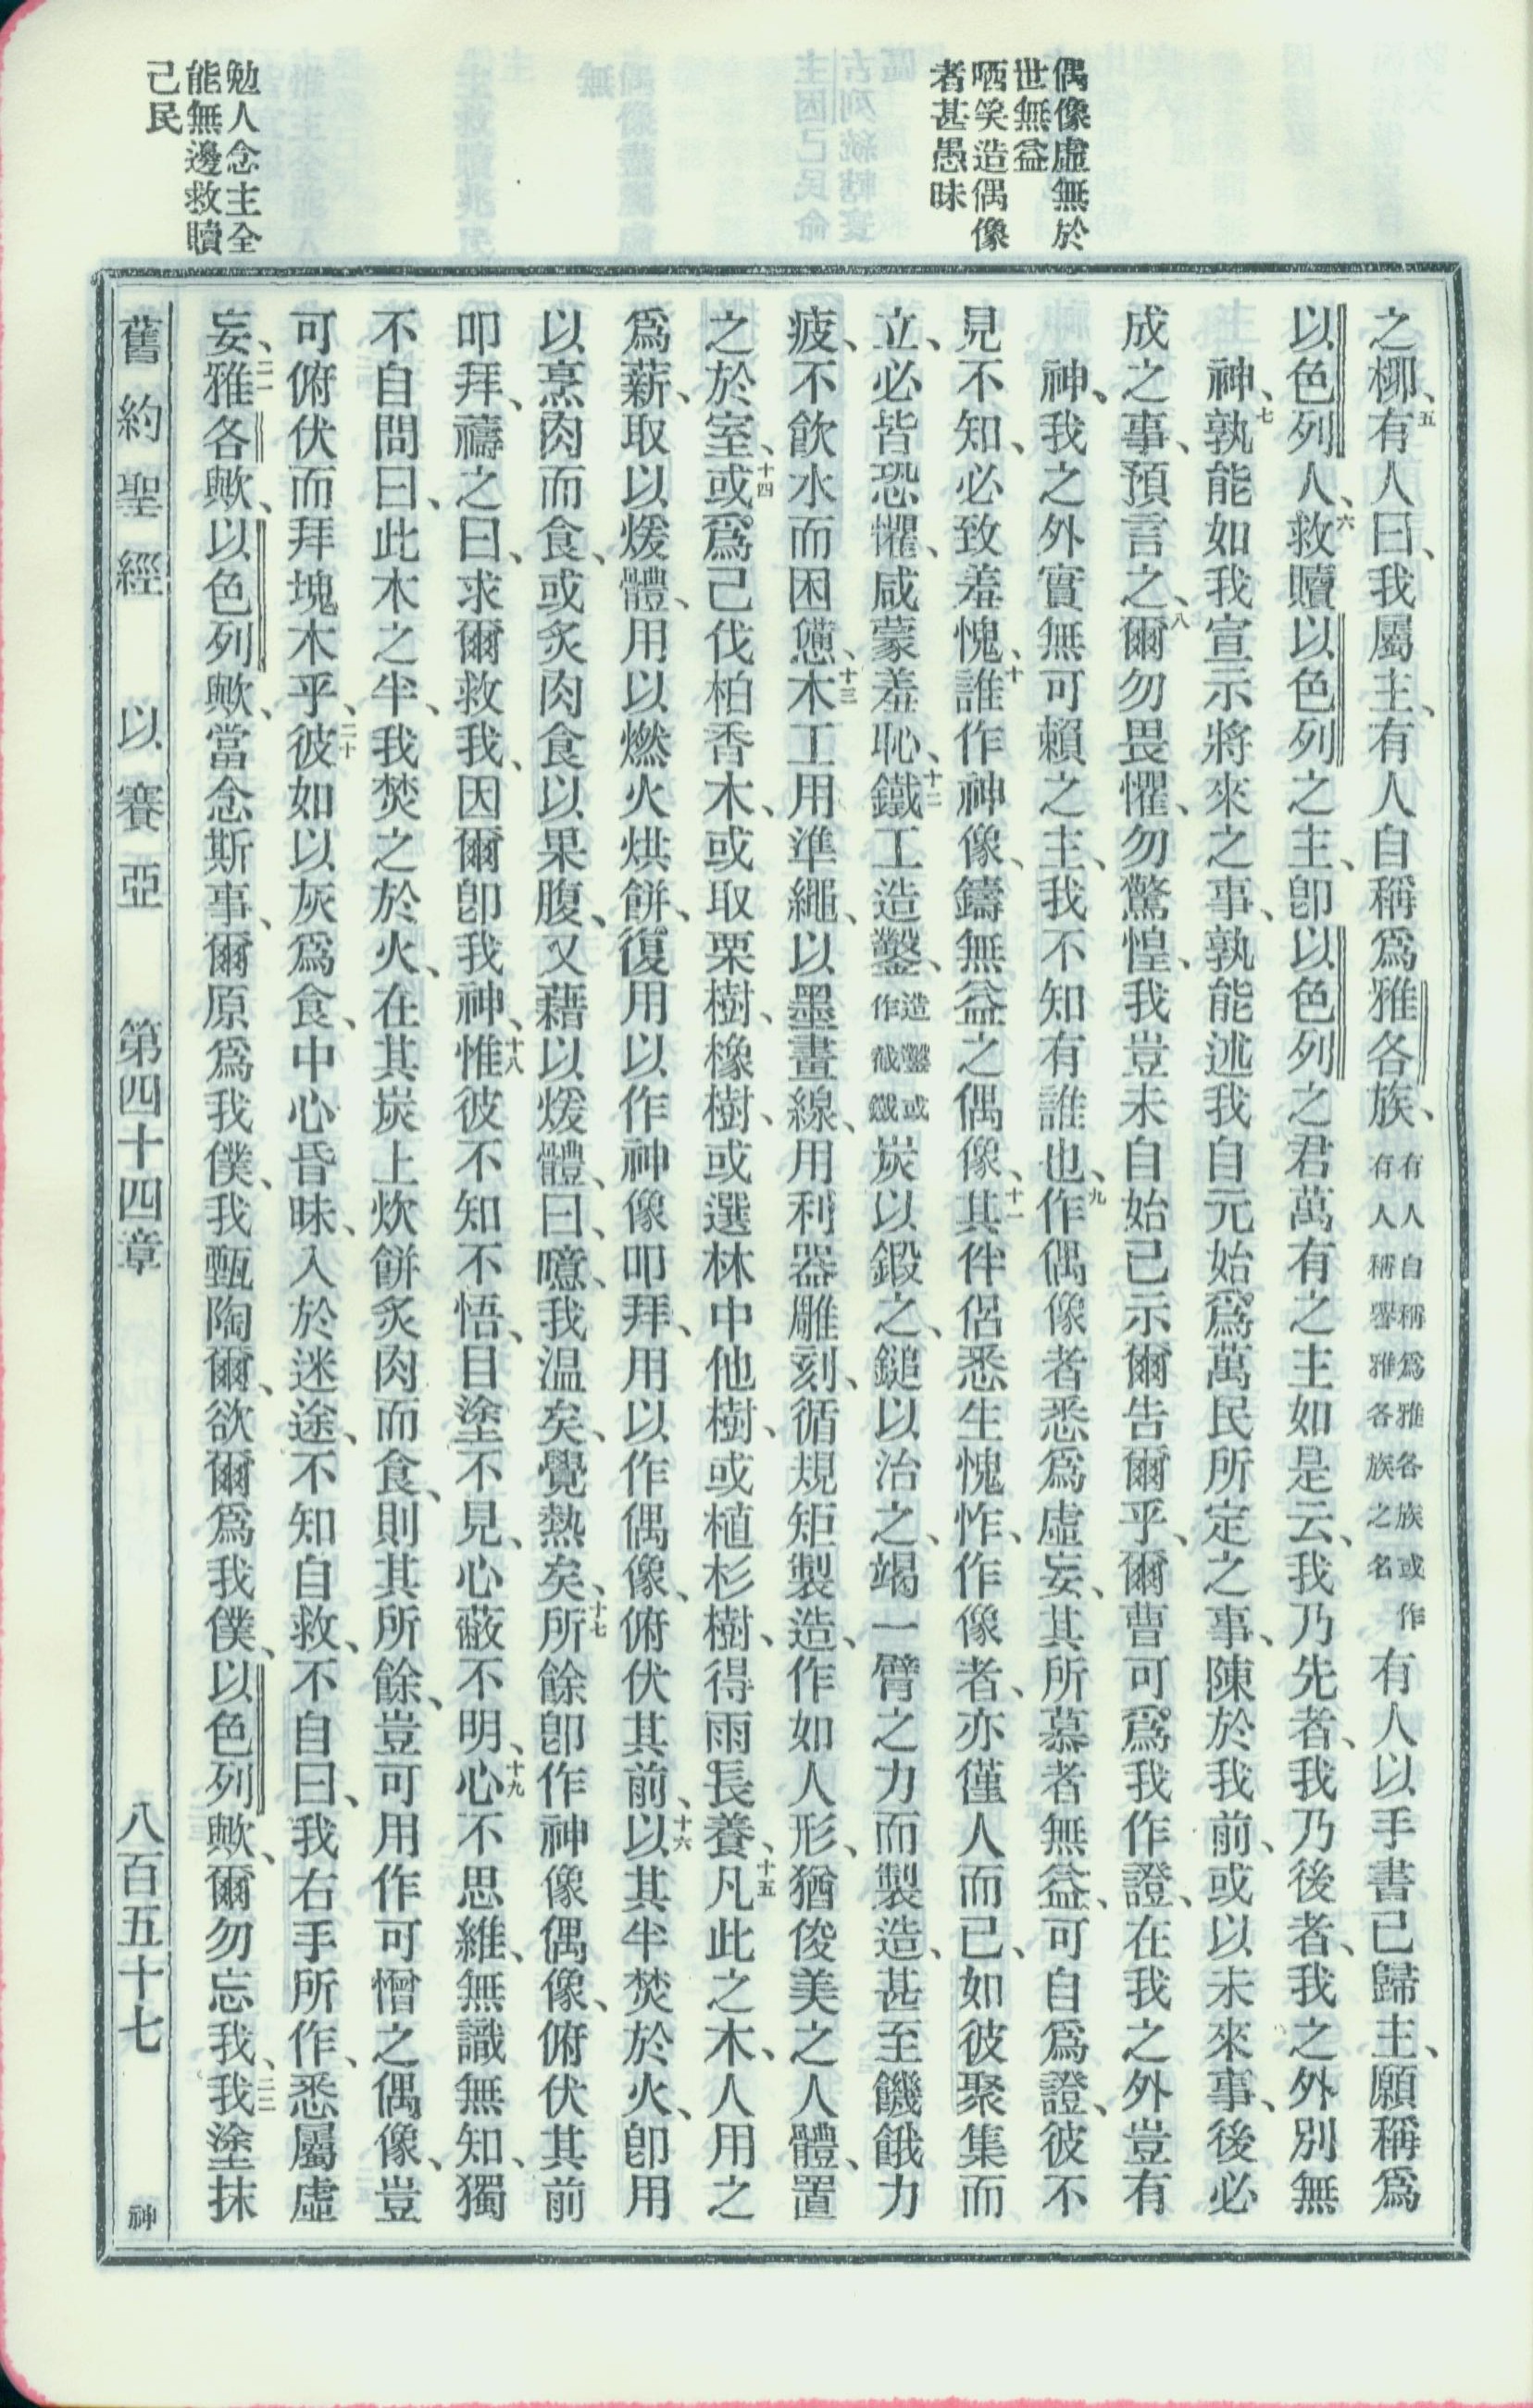 偶像虛無於
世無益
哂笑造偶像
者甚愚昧
勉人念主全
能無邊救贖
己民
之柳、五有人曰、我屬主、有人自稱爲雅各族、有人自稱爲雅各族或作有人稱譽雅各族之名有人以手書己歸主、願稱爲
以色列人、六救贖以色列之主、卽以色列之君萬有之主如是云、我乃先者、我乃後者、我之外別無
神、七孰能如我宣示將來之事、孰能述我自元始爲萬民所定之事、陳於我前、或以未來事、後必
成之事、預言之、八爾勿畏懼、勿驚惶、我豈未自始已示爾告爾乎、爾曹可爲我作證、在我之外豈有
神、我之外實無可賴之主、我不知有誰也、九作偶像者悉爲虛妄、其所慕者無益、可自爲證、彼不
見不知、必致羞愧、十誰作神像、鑄無益之偶像、十一其伴侶悉生愧怍、作像者、亦僅人而已、如彼聚集而
立、必皆恐懼、咸蒙羞恥、十二鐵工造鑿、造鑿或作截鐵炭以鍛之、鎚以治之、竭一臂之力而製造、甚至饑餓力
疲、不飲水而困憊、十三木工用準繩、以墨畫線、用利器雕刻、循規矩製造、作如人形、猶俊美之人體、置
之於室、十四或爲己伐柏香木、或取栗樹、橡樹、或選林中他樹、或植杉樹、得雨長養、十五凡此之木、人用之
爲薪、取以煖體、用以燃火烘餅、復用以作神像叩拜、用以作偶像、俯伏其前、十六以其半焚於火、卽用
以烹肉而食、或炙肉食以果腹、又藉以煖體、曰、噫、我温矣、覺熱矣、十七所餘卽作神像偶像、俯伏其前
叩拜、禱之曰、求爾救我、因爾卽我神、十八惟彼不知不悟、目塗不見、心蔽不明、十九心不思維、無識無知、獨
不自問曰、此木之半、我焚之於火、在其炭上炊餅炙肉而食、則其所餘、豈可用作可憎之偶像、豈
可俯伏而拜塊木乎、二十彼如以灰爲食、中心昏昧、入於迷途、不知自救、不自曰、我右手所作、悉屬虛
妄、二一雅各歟、以色列歟、當念斯事、爾原爲我僕、我甄陶爾、欲爾爲我僕、以色列歟、爾勿忘我、二二我塗抹
舊約聖經 以賽亞 第四十四章 八百五十七 神